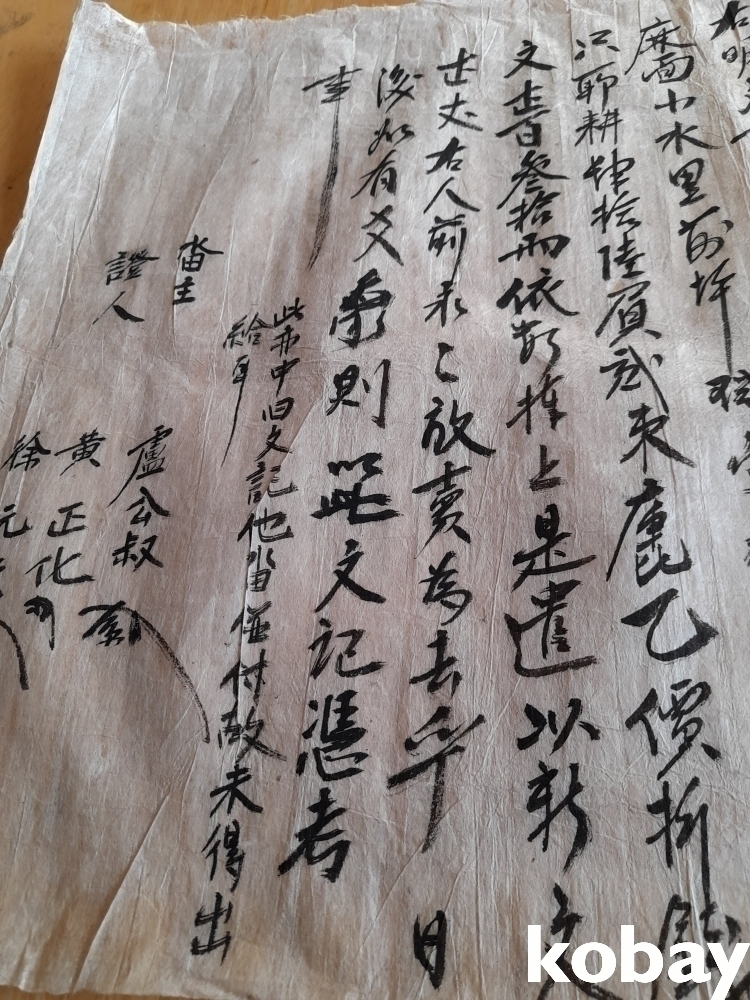 右明文
面小水里前坪
耕肆拾陸負貳束庫乙價折錢
文壹百叄拾兩依數捧上是遣以新文
壹丈右人前永〻放賣爲去乎日
後如有爻象則以此文記憑考
事
此亦中旧文記他畓倂付故未得出
給耳
畓主 盧公叔
證人 黃正化
徐元
kobay